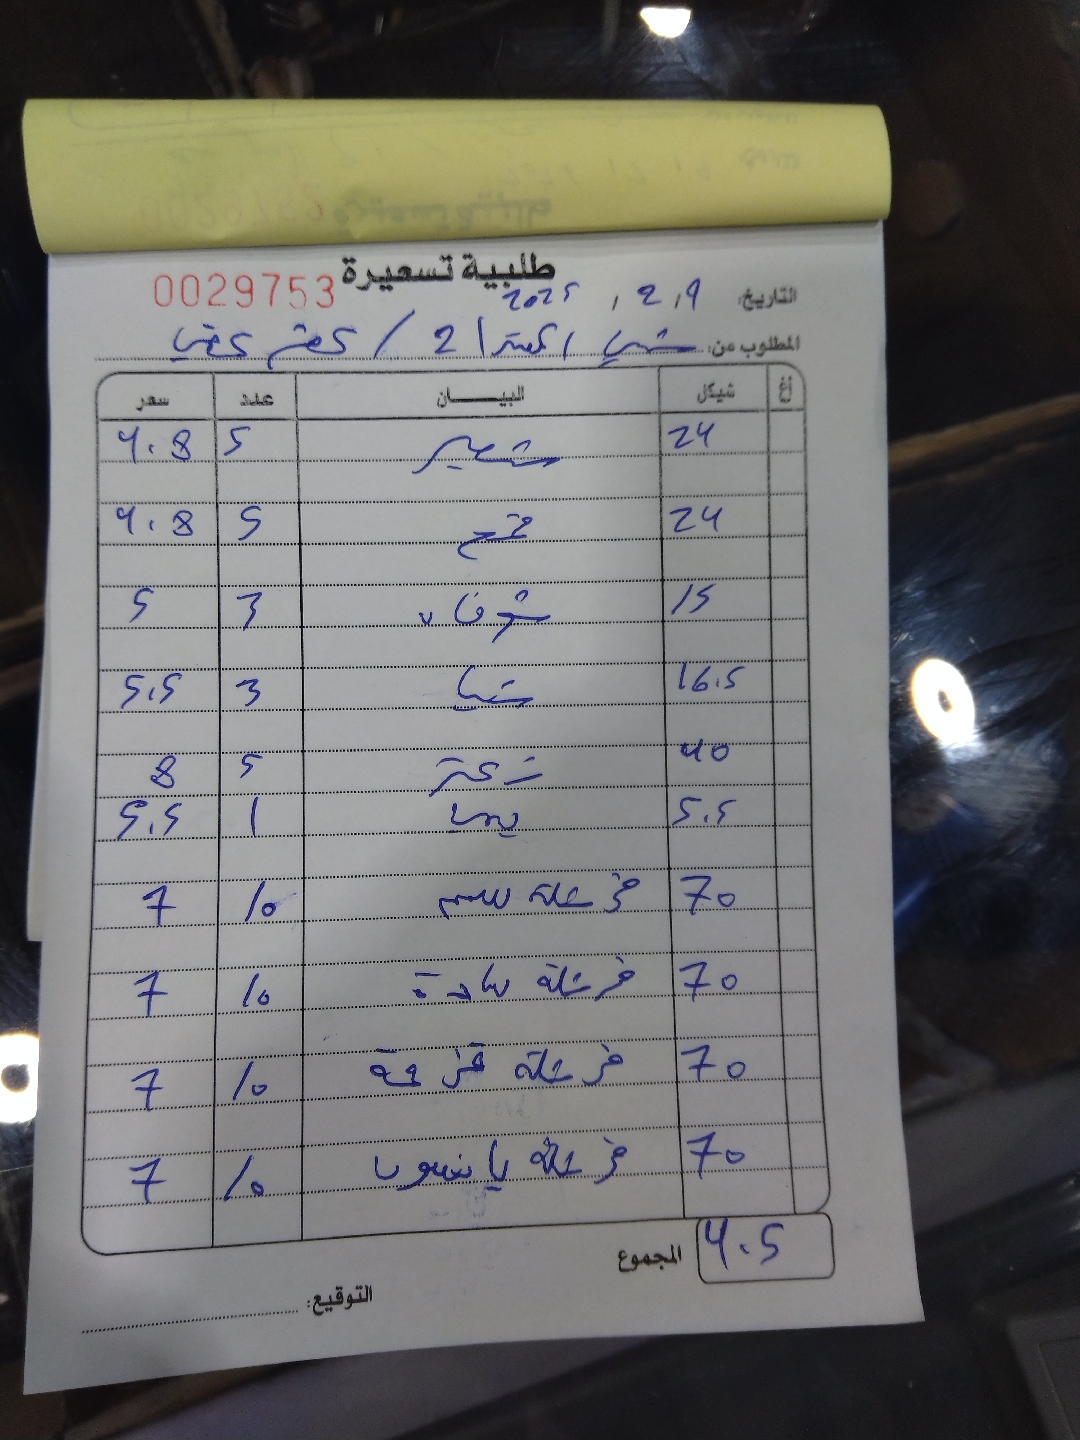 طلبية تسعيرة
0029753
التاريخ: 9 / 2 / 2025
المطلوب من: 2 /
أغ شيكل البيـــــان عدد سعر
24 شعير 5 4.8
24 قمح 5 4.8
15 شوفان 3 5
16.5 شيا 3 5.5
40 5 8
5.5 1 5.5
70 قرشلة سمسم 10 7
70 قرشلة سادة 10 7
70 قرشلة قزحة 10 7
70 قرشلة يانسون 10 7
المجموع 405
التوقيع: